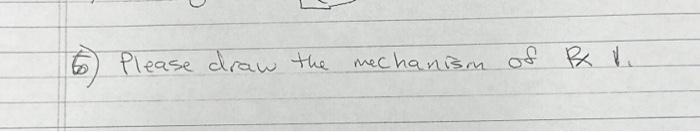 6) Please draw the mechanism of Rx 1.